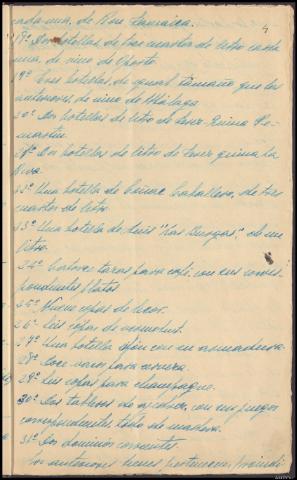 4
cada una, de Ron Jamaica.
18º Dos botellas, de tres cuartos de litro cada
una, de vino de Oporto
19º Tres botellas, de igual tamaño que los
anteriores, de vino de Málaga
20º Dos botellas de litro de Jerez-Quina
21º Dos botellas de litro de Jerez quina La
Riva
22º Una botella de Coñac Caballero, de tres
cuartos de litro
23º Una botella de Anís "Las Burgas" de un
litro.
24º Catorce tazas para café, con sus corres-
pondientes platos
25º Nueve copas de licor.
26º Seis copas de vermouth.
27º Una botella sifón con su armadura.
28º Doce vasos para
29º Seis copas para champagne.
30º Dos tableros de ajedrez, con sus juegos
correspondientes, todo de madera.
31º Dos dominós corrientes.
Los anteriores bienes pertenecen,